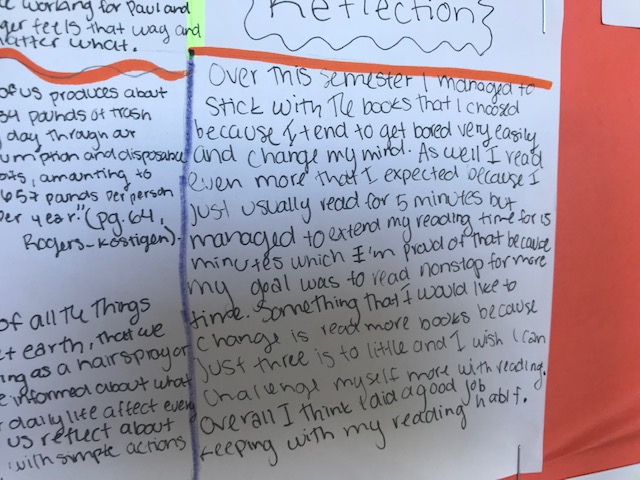 e working for Paul and
ger feels that way and
matter what.
of us produces about
34 pounds of trash
day through our
umption and disposable
, amounting to
657 pounds per person
per year." (pg. 64,
Rogers-Kostigen).
of all The Things
t earth, that we
ing as a hairspray or
e informed about what
daily life affect every
us reflect about
with simple actions
{Reflection}
Over This semester I managed to
stick with The books that I choosed
because I tend to get bored very easily
and change my mind. As well I read
even more that I expected because I
just usually read for 5 minutes but
managed to extend my reading time for 15
minutes which I'm proud of that because
my goal was to read nonstop for more
time. Something that I would like to
change is read more books because
just three is to little and I wish I can
challenge myself more with reading.
Overall I think I did a good job
keeping with my reading habit.